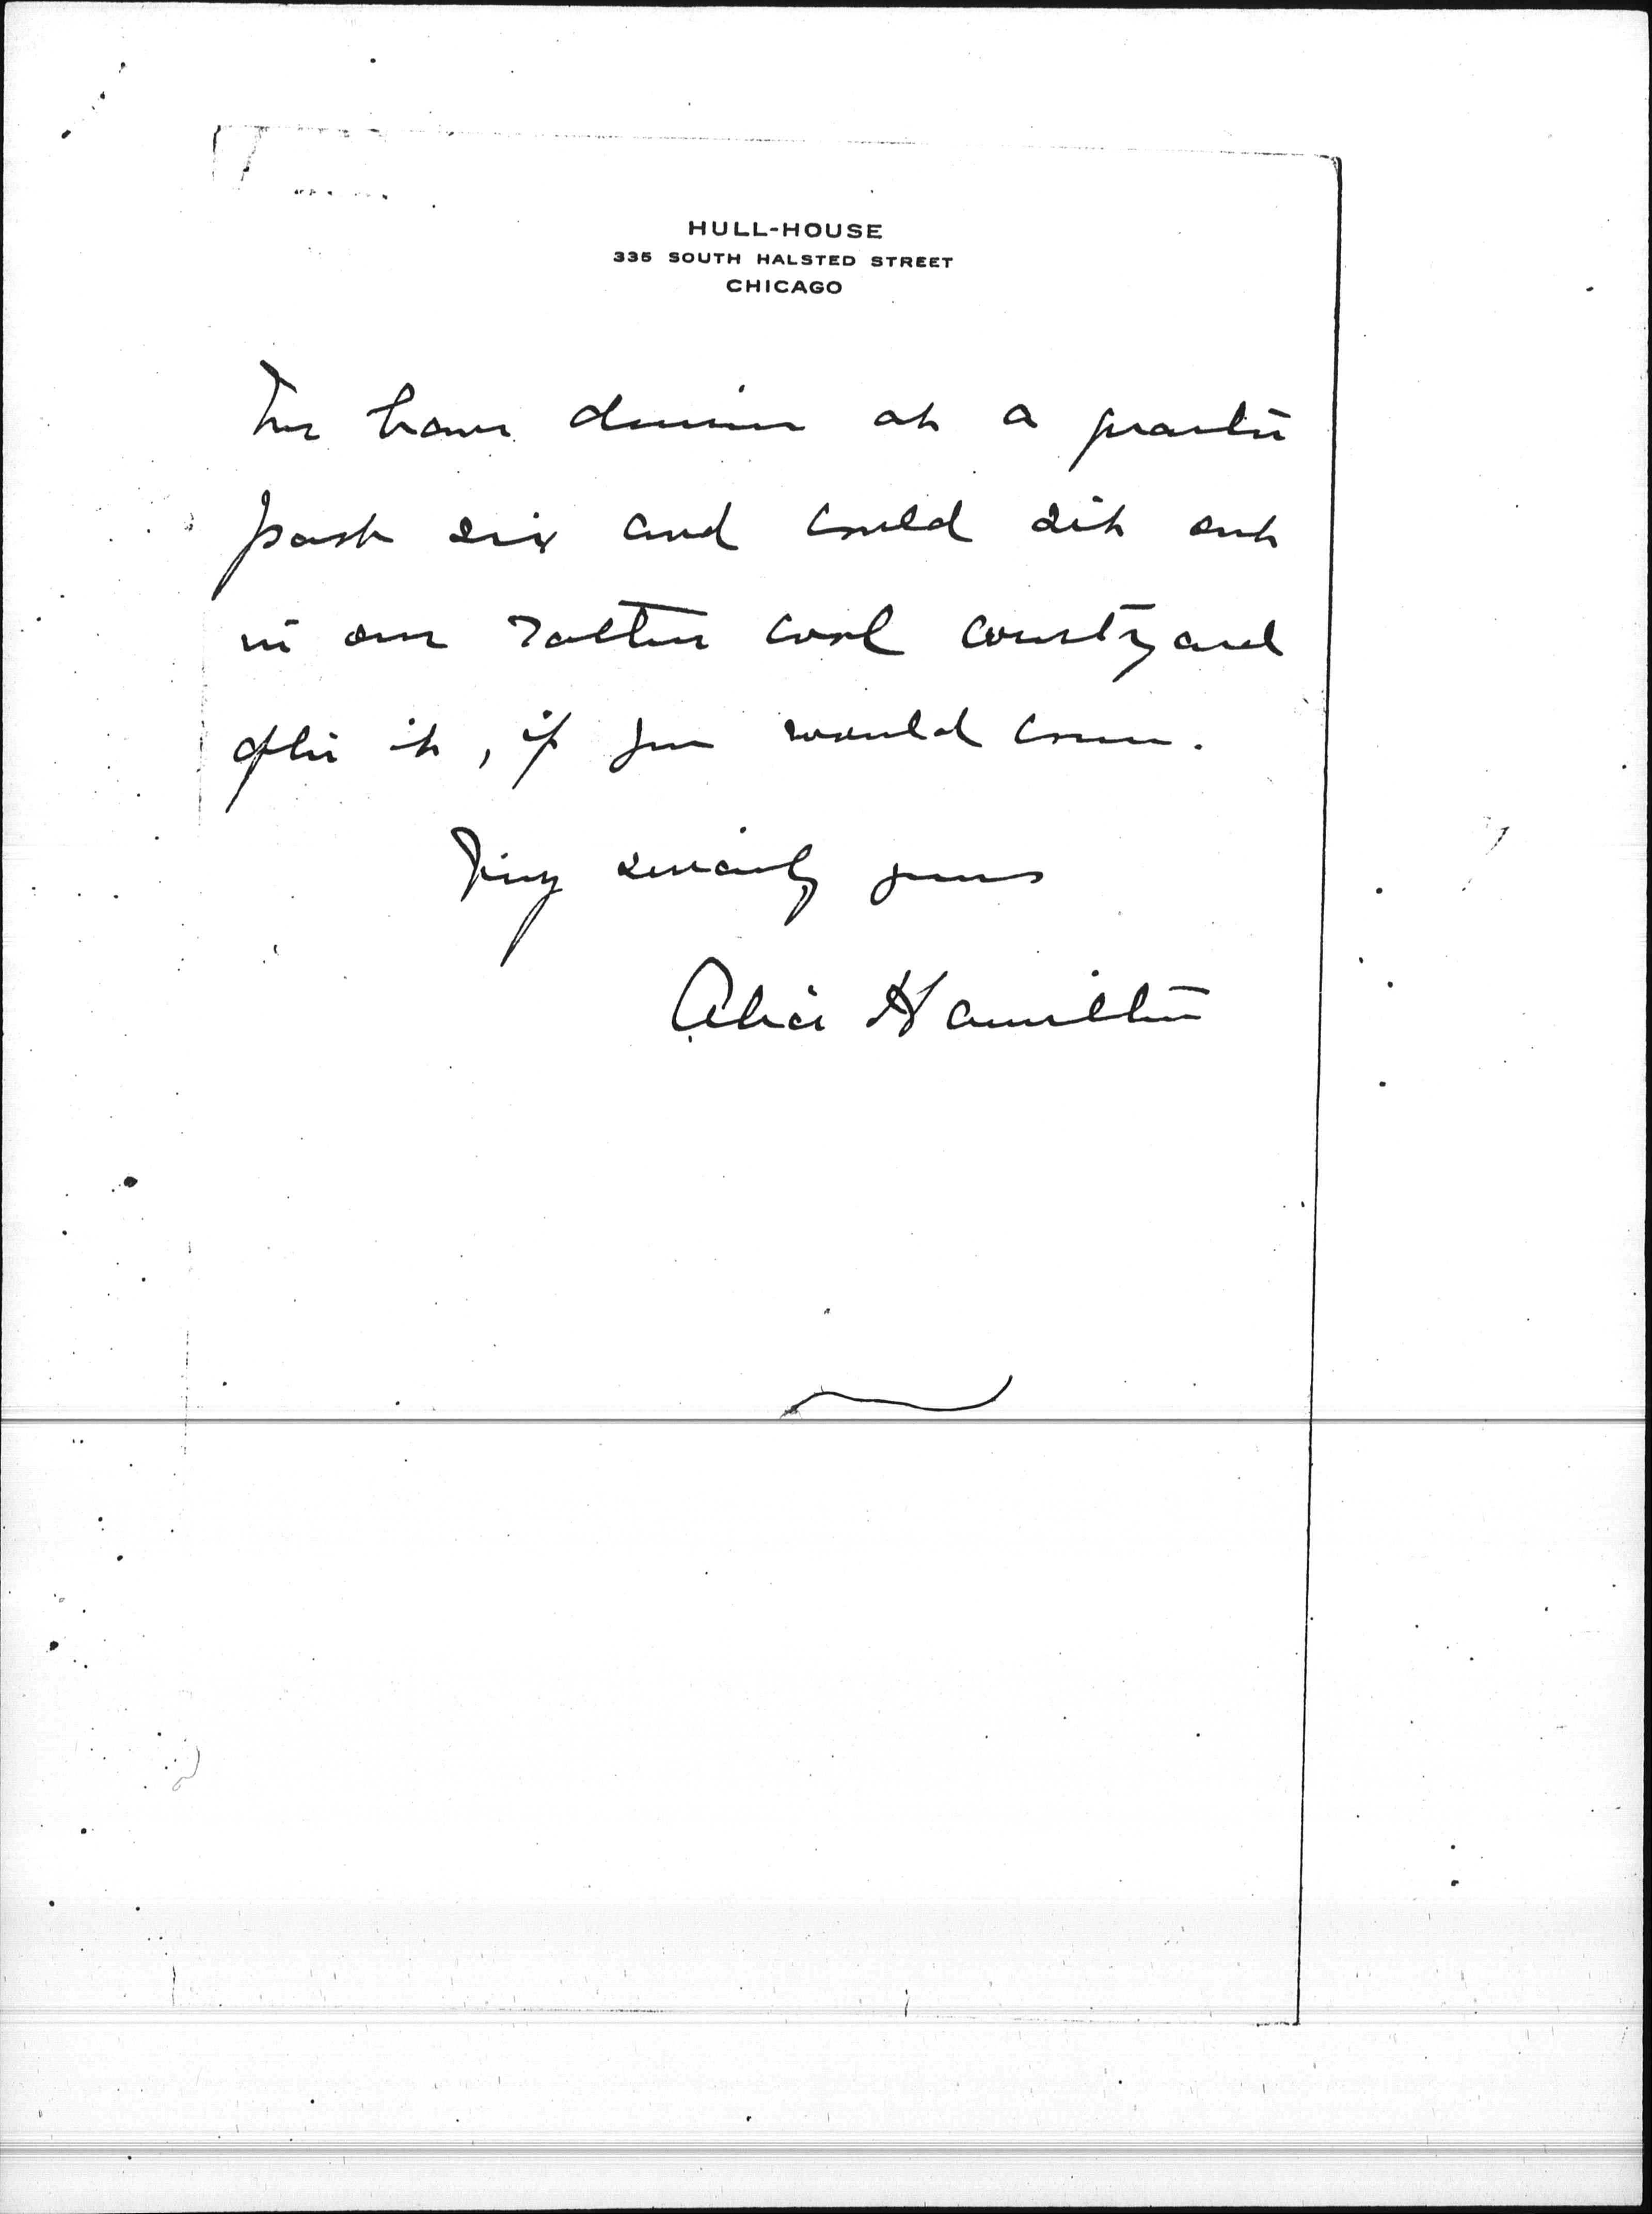 HULL-HOUSE
335 SOUTH HALSTED STREET
CHICAGO
We have dinner at a quarter
past six and could sit out
in our rather cool courtyard
after it, if you would come.
Very sincerely yours
Alice Hamilton